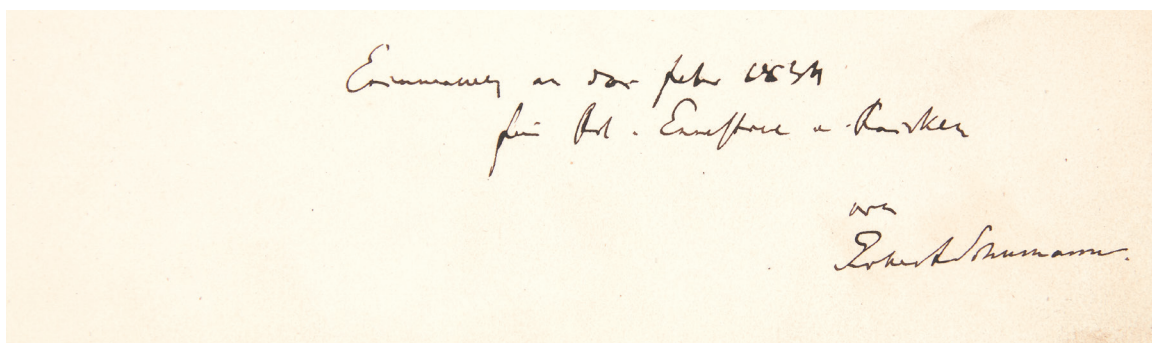 Erinnerung an das Jahr 1834
für Frl. Ernestine v. Fricken
von
Robert Schumann.